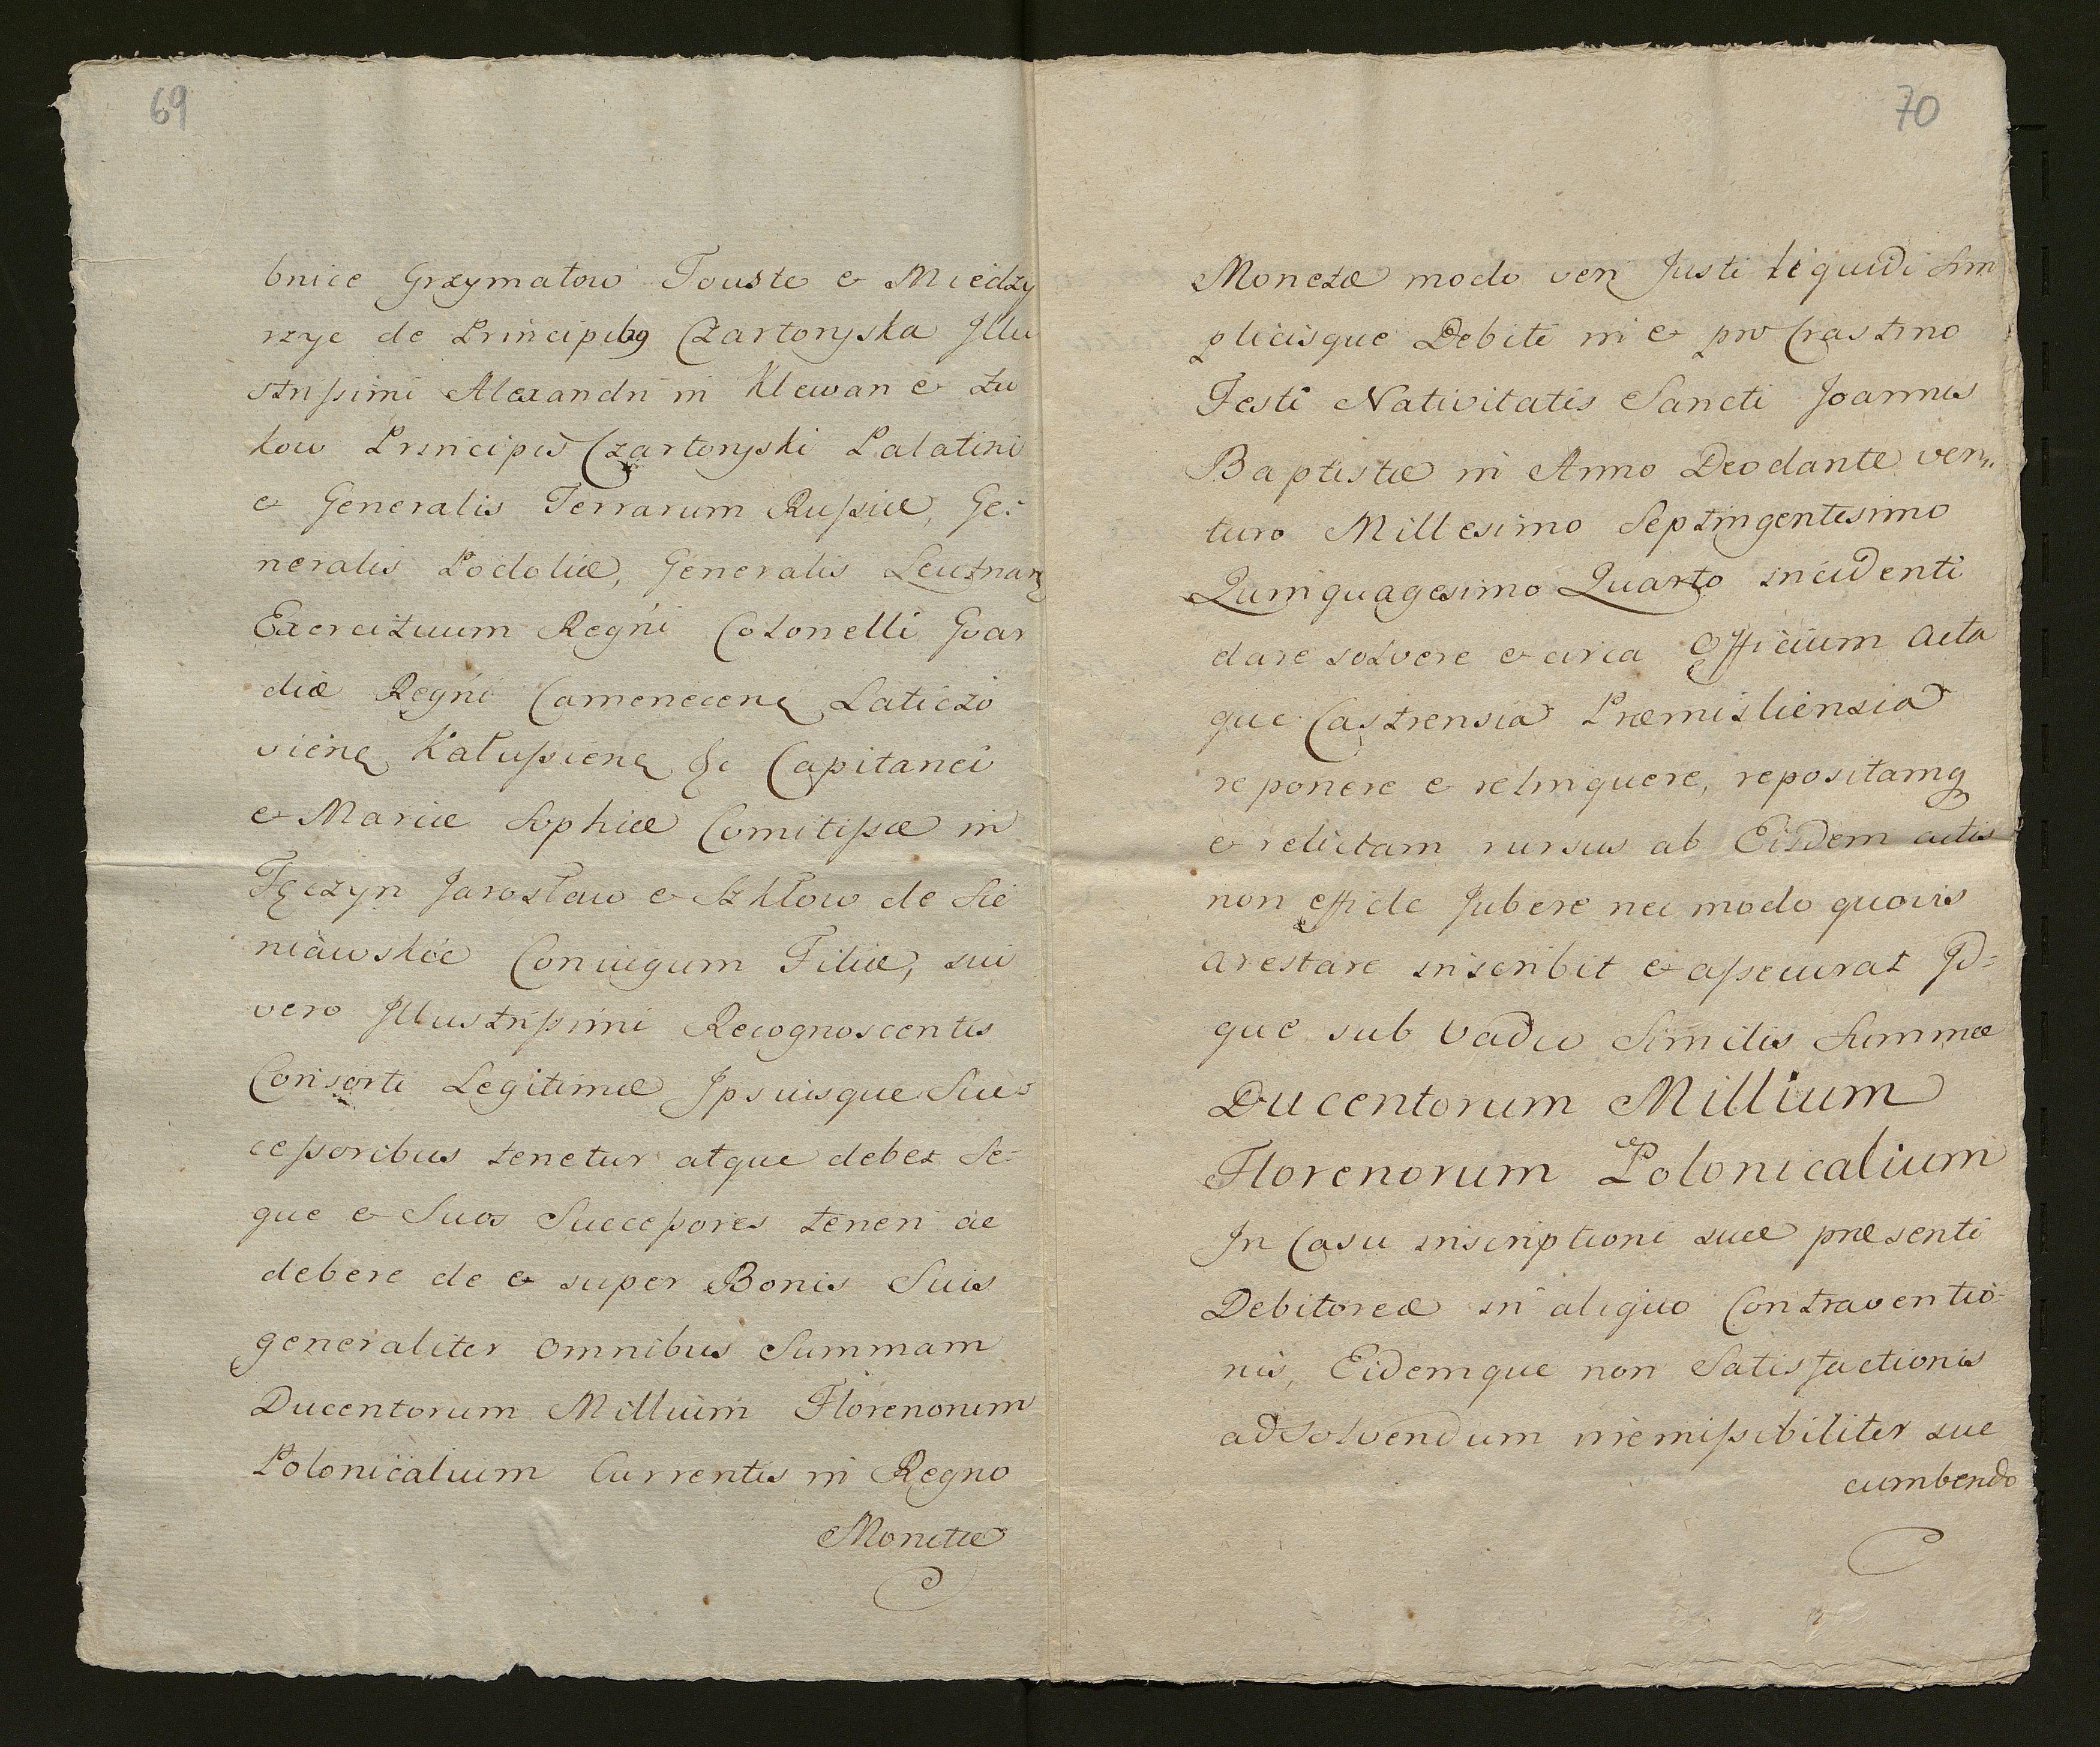 69
bnice Grzymałow Touste & Miedzy
rzyc de Principibg Czartoryska Illu
strissimi Alexandri in Klewan & Zu
kow Principis Czartoryski Palatini
& Generalis Terrarum Russiæ, Ge:
neralis Podoliæ, Generalis Leutnan
Exercituum Regni Colonelli Gvar
diæ Regni Camenecen Laticzo
vien Kałussien &c Capitanei
& Mariæ Sophiæ Comitissæ in
Tęczyn Jarosław & Szkłow de Sie
niawskie Coniugum Filiæ, sui
vero Illustrissimi Recognoscentis
Consorti Legitimæ Ipsiusque Suc=
cessoribus tenetur atque debet Se=
que & Suos Successores teneri ac
debere de & super Bonis Suis
generaliter omnibus Summam
Ducentorum Millium Florenorum
Polonicalium Currentis in Regno
Monetæ
70
Monetæ modo veri Justi liquidi Sim
plicisque Debiti in & pro Crastino
Festi Nativitatis Sancti Joannis
Baptistæ in Anno Deodante ven„
turo Millesimo Septingentesimo
Quinquagesimo Quarto incidenti
dare solvere & circa Officium Acta
que Castrensia Præmisliensia
reponere & relinquere, repositamq
& relictam rursus ab Eisdem actis
non effide Jubere nec modo quovis
arestare inscribit & assecurat Id=
que sub Vadio Similis Summæ
Ducentorum Millium
Florenorum Polonicalium
In Casu inscriptioni suæ præsenti
Debitoreæ in aliquo Contraventio=
nis, Eidemque non Satisfactionis
ad Solvendum irremissibiliter suc
cumbendo